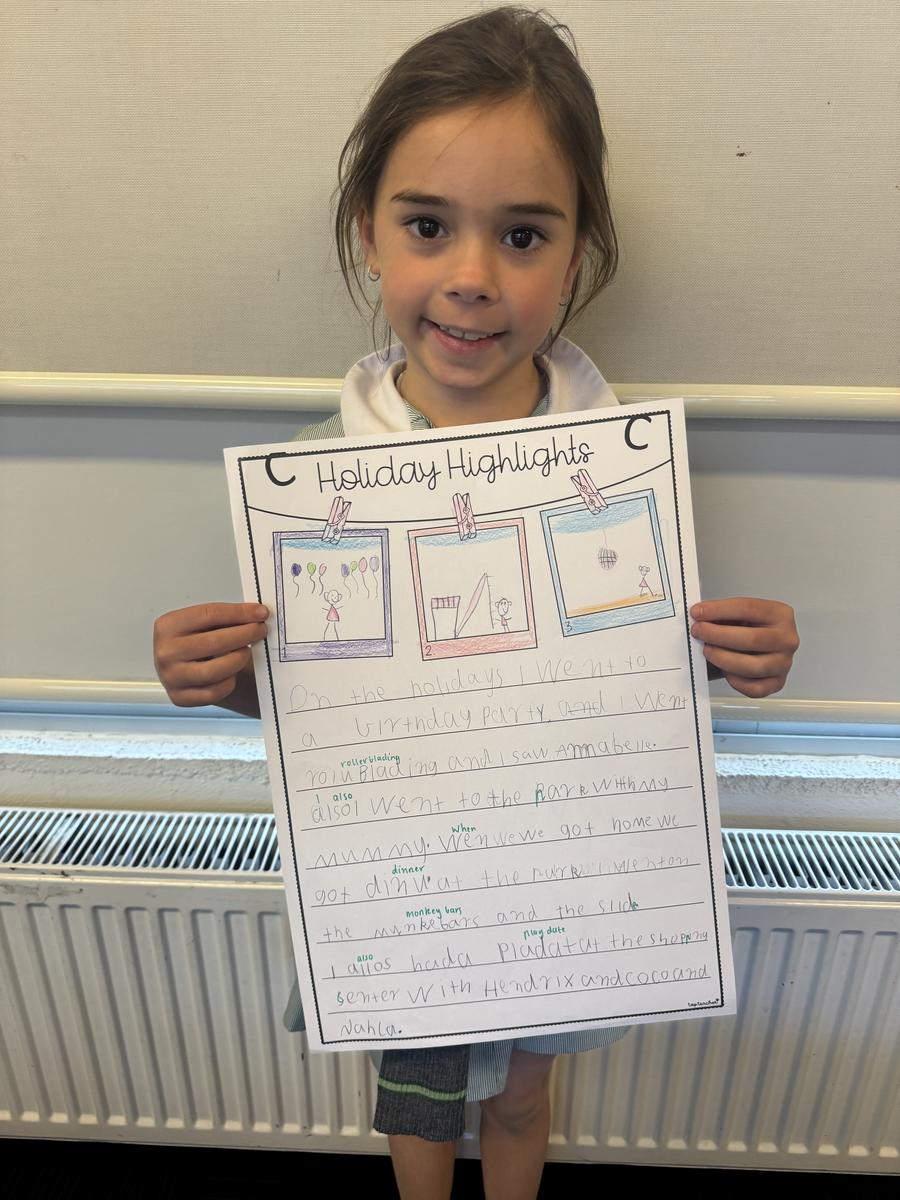 C Holiday Highlights C
1 2 3
On the holidays I Went to
a birthday party. and I Went
rollerblading
roluBlading and I saw Annabelle.
I also
alsoI Went to the park with my
When
mummy. Wen we we got home we
dinner
got dinu. at the park I Went on
monkey bars
the munkebars and the slide
also play date
I allos hada Pladatat at the shopping
senter With Hendrix and coco and
Nahla.
top teacher